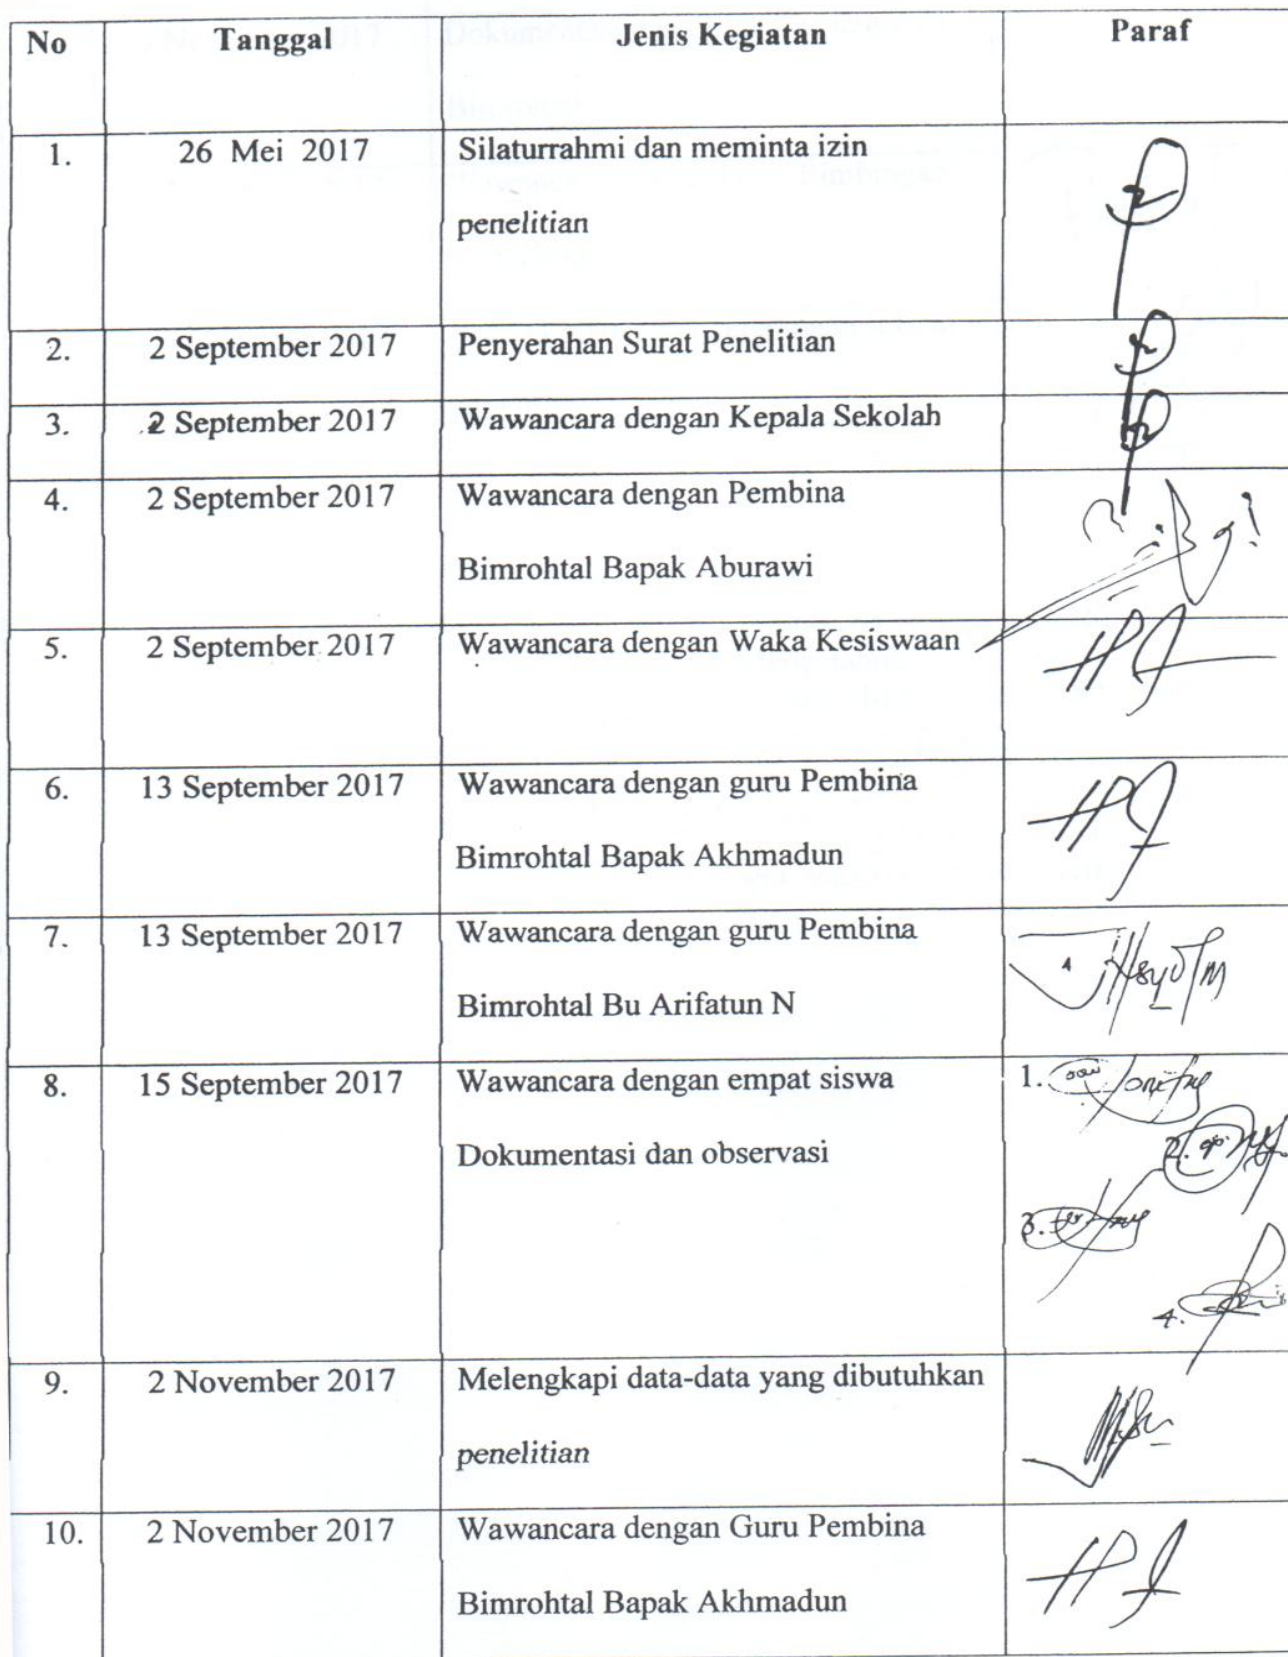 No Tanggal Jenis Kegiatan Paraf
1. 26 Mei 2017 Silaturrahmi dan meminta izin
penelitian
2. 2 September 2017 Penyerahan Surat Penelitian
3. 2 September 2017 Wawancara dengan Kepala Sekolah
4. 2 September 2017 Wawancara dengan Pembina
Bimrohtal Bapak Aburawi
5. 2 September 2017 Wawancara dengan Waka Kesiswaan
6. 13 September 2017 Wawancara dengan guru Pembina
Bimrohtal Bapak Akhmadun
7. 13 September 2017 Wawancara dengan guru Pembina
Bimrohtal Bu Arifatun N
8. 15 September 2017 Wawancara dengan empat siswa 1.
Dokumentasi dan observasi 2.
3.
4.
9. 2 November 2017 Melengkapi data-data yang dibutuhkan
penelitian
10. 2 November 2017 Wawancara dengan Guru Pembina
Bimrohtal Bapak Akhmadun